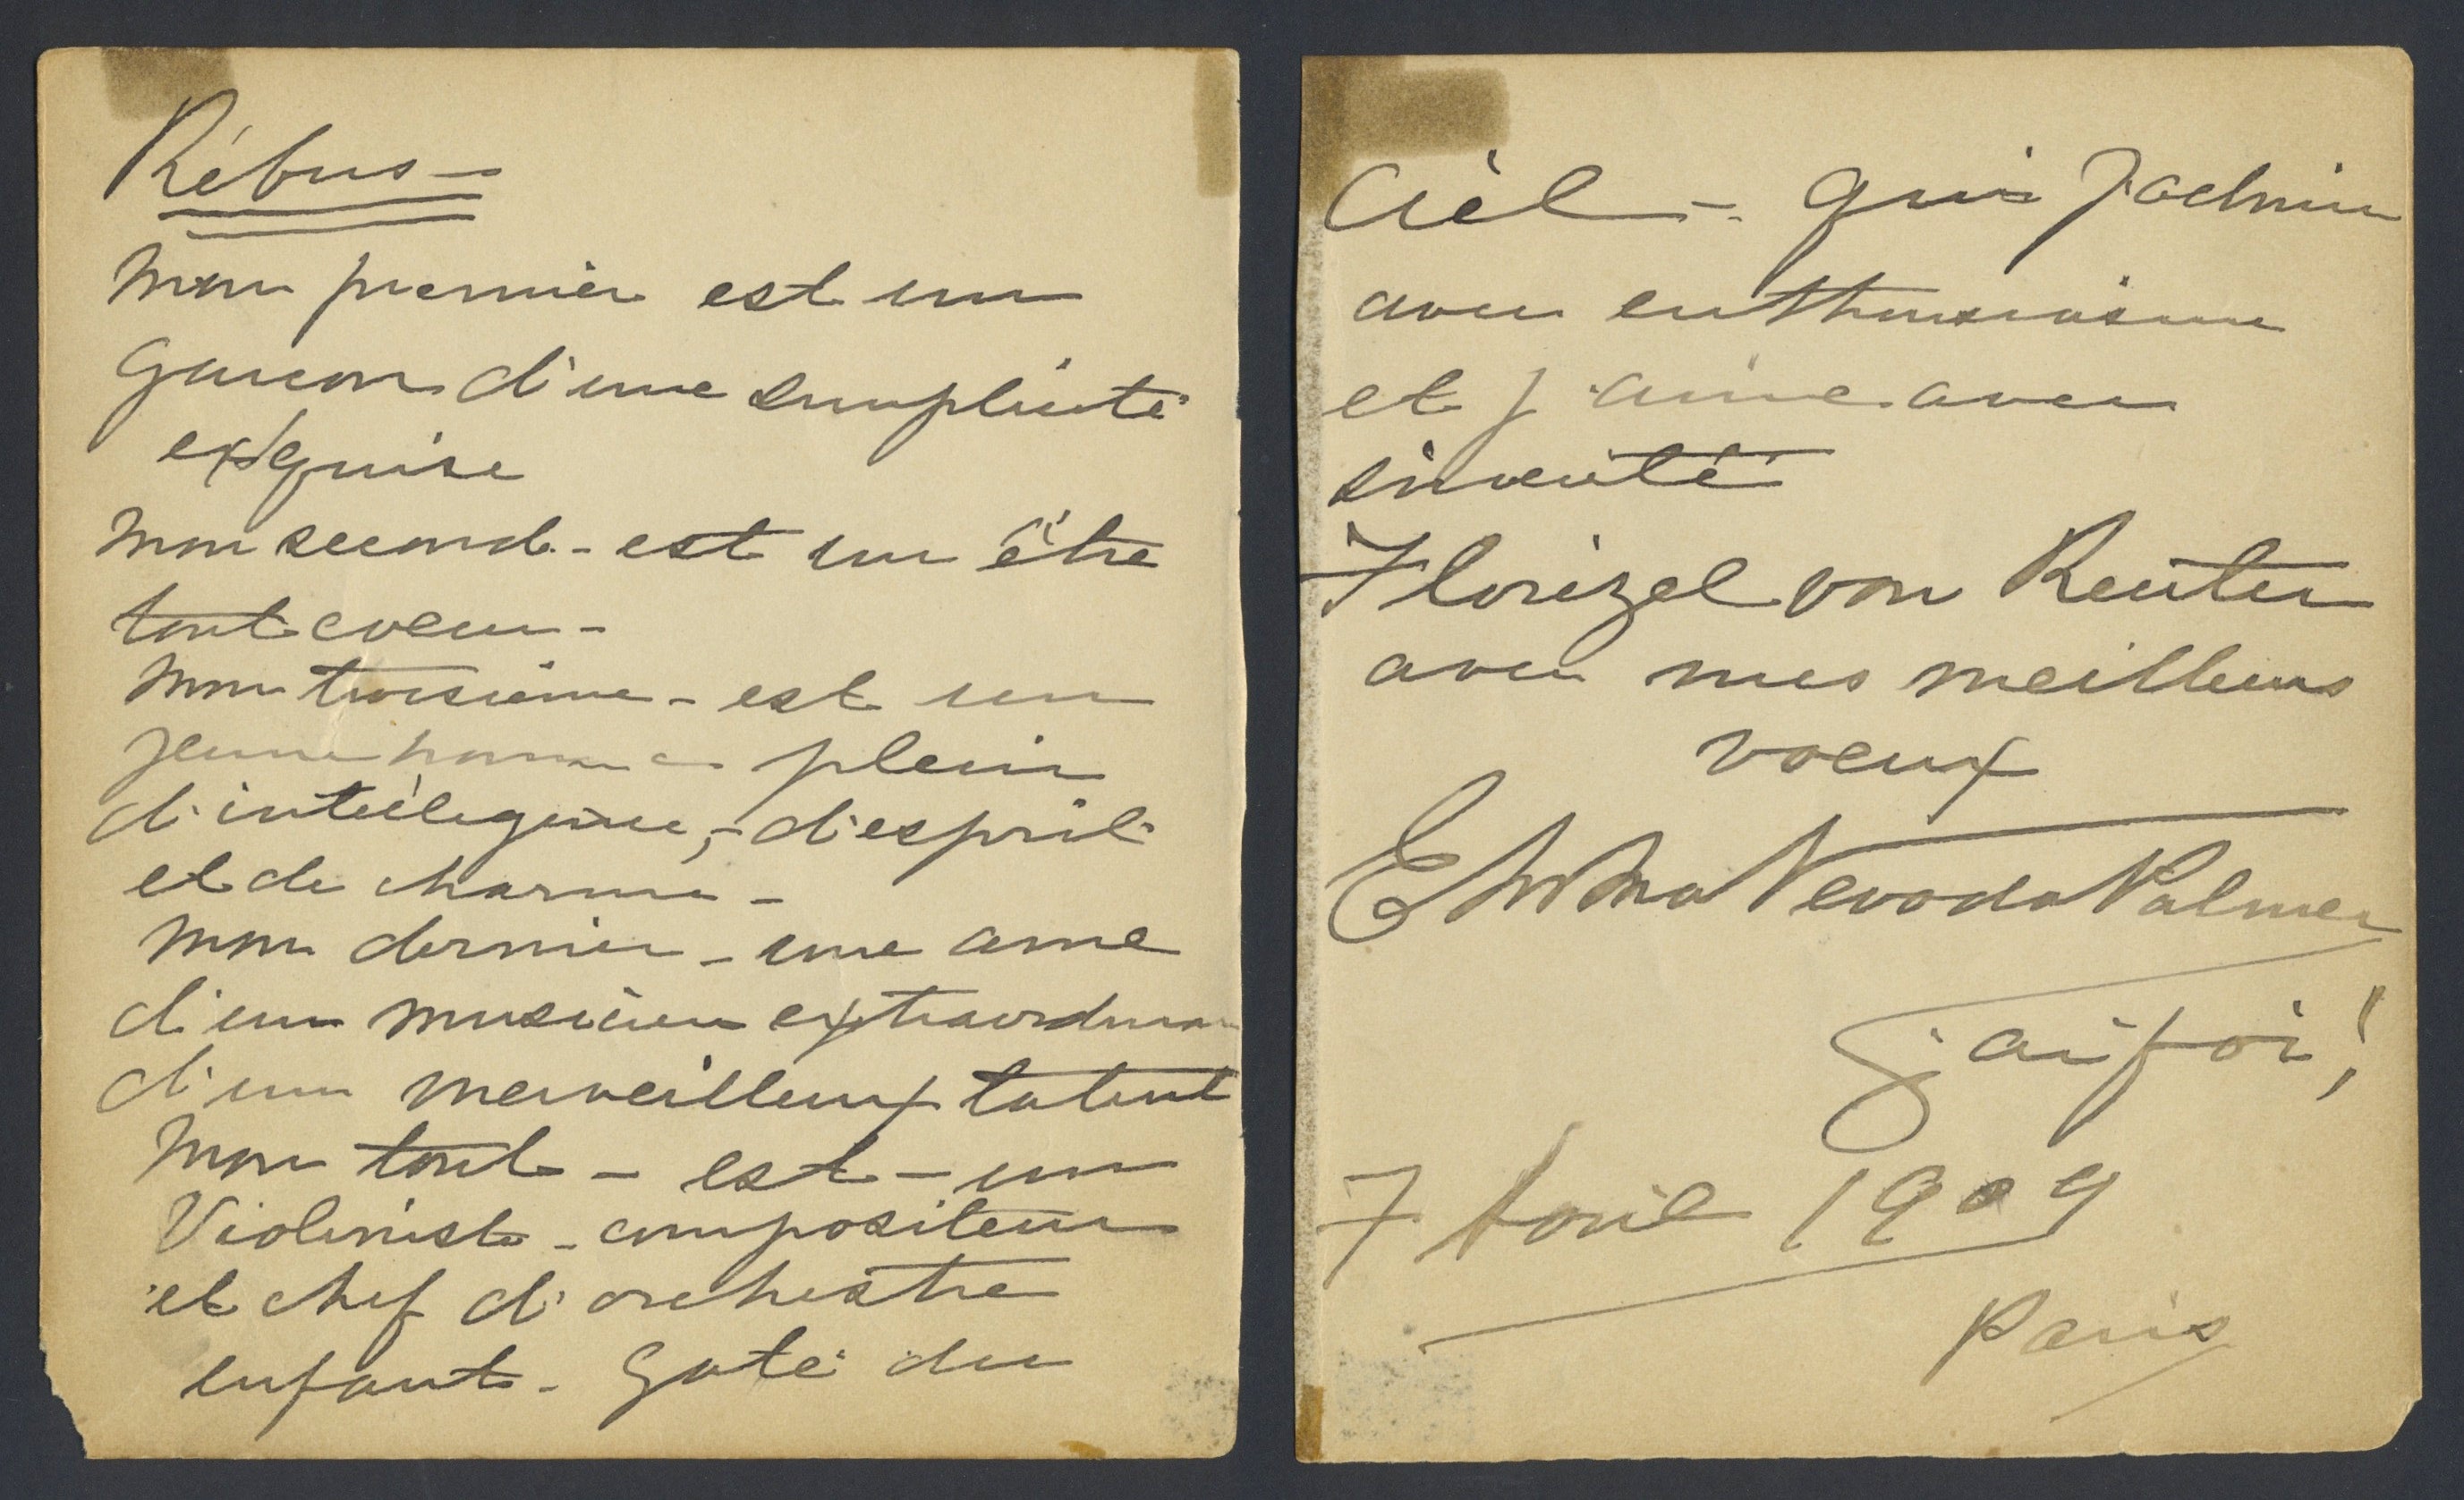 Rébus -
Mon premier est un
garcon d'une simplicité
exquise
Mon second - est un être
tout coeur -
Mon troisième - est un
jeune homme plein
d'intelligence, - d'esprit
et de charme -
Mon dernier - une ame
d'un musicien extraordinaire
d'un merveilleux talent
Mon tout - est - un
Violiniste - compositeur
et chef d'orchestre
enfant - gaté du
Ciel - que j'admire
avec enthousiasme
et j'aime avec
sincerité
Florizel von Reuter
avec mes meilleurs
voeux
Emma Nevada Palmer
J'ai foi!
7 Avril 1909
Paris